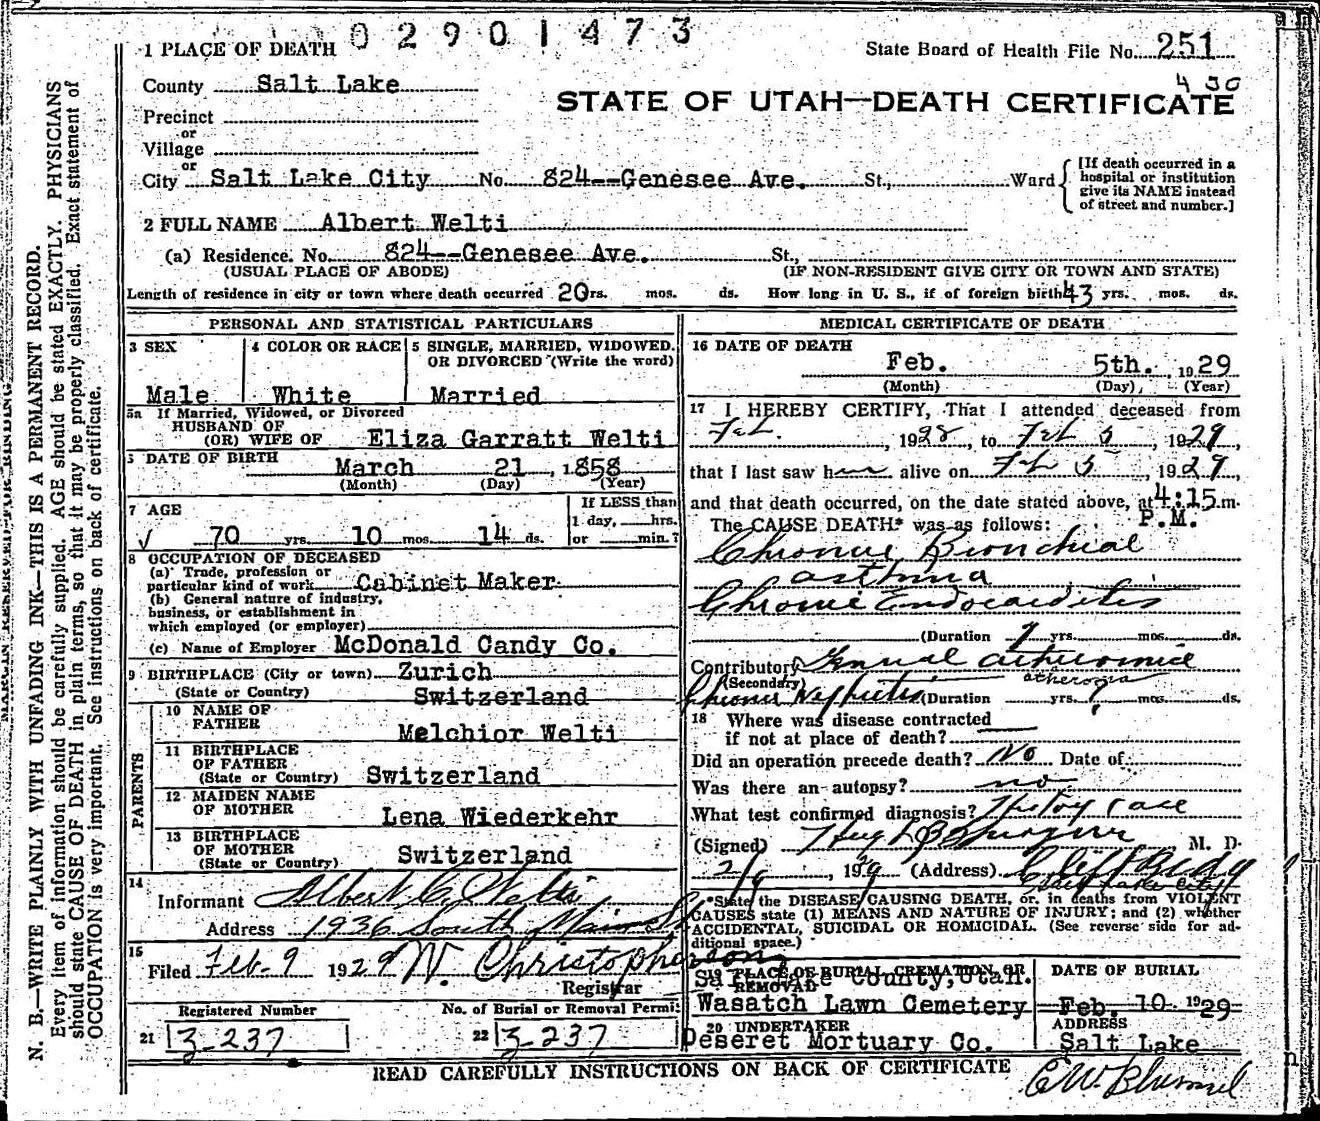 0 2 9 0 1 4 7 3
1 PLACE OF DEATH
State Board of Health File No. 251
County Salt Lake
4 30
STATE OF UTAH—DEATH CERTIFICATE
Precinct
or
Village
or
City Salt Lake City No. 824--Genesee Ave. St., Ward
[If death occurred in a hospital or institution give its NAME instead of street and number.]
2 FULL NAME Albert Welti
(a) Residence. No. 824--Genesee Ave. St.,
(USUAL PLACE OF ABODE) (IF NON-RESIDENT GIVE CITY OR TOWN AND STATE)
Length of residence in city or town where death occurred 20 rs. mos. ds. How long in U. S., if of foreign birth 43 yrs. mos. ds.
PERSONAL AND STATISTICAL PARTICULARS
3 SEX
Male
4 COLOR OR RACE
White
5 SINGLE, MARRIED, WIDOWED.
OR DIVORCED (Write the word)
Married
5a If Married, Widowed, or Divorced
HUSBAND OF
(OR) WIFE OF Eliza Garratt Welti
DATE OF BIRTH
March 21 , 1858
(Month) (Day) (Year)
7 AGE
70 yrs. 10 mos. 14 ds.
If LESS than
1 day, hrs.
or min.?
8 OCCUPATION OF DECEASED
(a) Trade, profession or
particular kind of work Cabinet Maker
(b) General nature of industry,
business, or establishment in
which employed (or employer)
(c) Name of Employer McDonald Candy Co.
9 BIRTHPLACE (City or town) Zurich
(State or Country) Switzerland
PARENTS
10 NAME OF
FATHER Melchior Welti
11 BIRTHPLACE
OF FATHER
(State or Country) Switzerland
12 MAIDEN NAME
OF MOTHER Lena Wiederkehr
13 BIRTHPLACE
OF MOTHER
(State or Country) Switzerland
14
Informant Albert C. Welti
Address 1936 South Main St
15
Filed Feb. 9 1929 W. Christopherson
Registrar
Registered Number
21 3-237
No. of Burial or Removal Permit
22 3-237
MEDICAL CERTIFICATE OF DEATH
16 DATE OF DEATH
Feb. 5th. , 1929
(Month) (Day) (Year)
17 I HEREBY CERTIFY, That I attended deceased from
Feb. , 1928, to Feb 5 , 1929,
that I last saw h alive on Feb 5 , 1929,
and that death occurred, on the date stated above, at 4:15 m.
P.M.
The CAUSE DEATH* was as follows:
Chronic Bronchial
asthma
Chronic Endocarditis
(Duration yrs. mos. ds.
Contributory
(Secondary)
atheroma
Chronic Nephritis (Duration yrs. ? mos. ds.
18 Where was disease contracted
if not at place of death?
Did an operation precede death? No Date of
Was there an autopsy? no
What test confirmed diagnosis? History case
(Signed) M. D.
2/9 , 1929 (Address) Cliff Bldg
Salt Lake City
*State the DISEASE CAUSING DEATH, or, in deaths from VIOLENT
CAUSES state (1) MEANS AND NATURE OF INJURY; and (2) whether
ACCIDENTAL, SUICIDAL OR HOMICIDAL. (See reverse side for ad-
ditional space.)
19 PLACE OF BURIAL, CREMATION, OR
REMOVAL
Salt Lake County, Utah.
Wasatch Lawn Cemetery
DATE OF BURIAL
Feb. 10 1929
20 UNDERTAKER
Deseret Mortuary Co.
ADDRESS
Salt Lake
READ CAREFULLY INSTRUCTIONS ON BACK OF CERTIFICATE
N. B.—WRITE PLAINLY WITH UNFADING INK—THIS IS A PERMANENT RECORD.
Every item of information should be carefully supplied. AGE should be stated EXACTLY. PHYSICIANS
should state CAUSE OF DEATH in plain terms, so that it may be properly classified. Exact statement of
OCCUPATION is very important. See instructions on back of certificate.